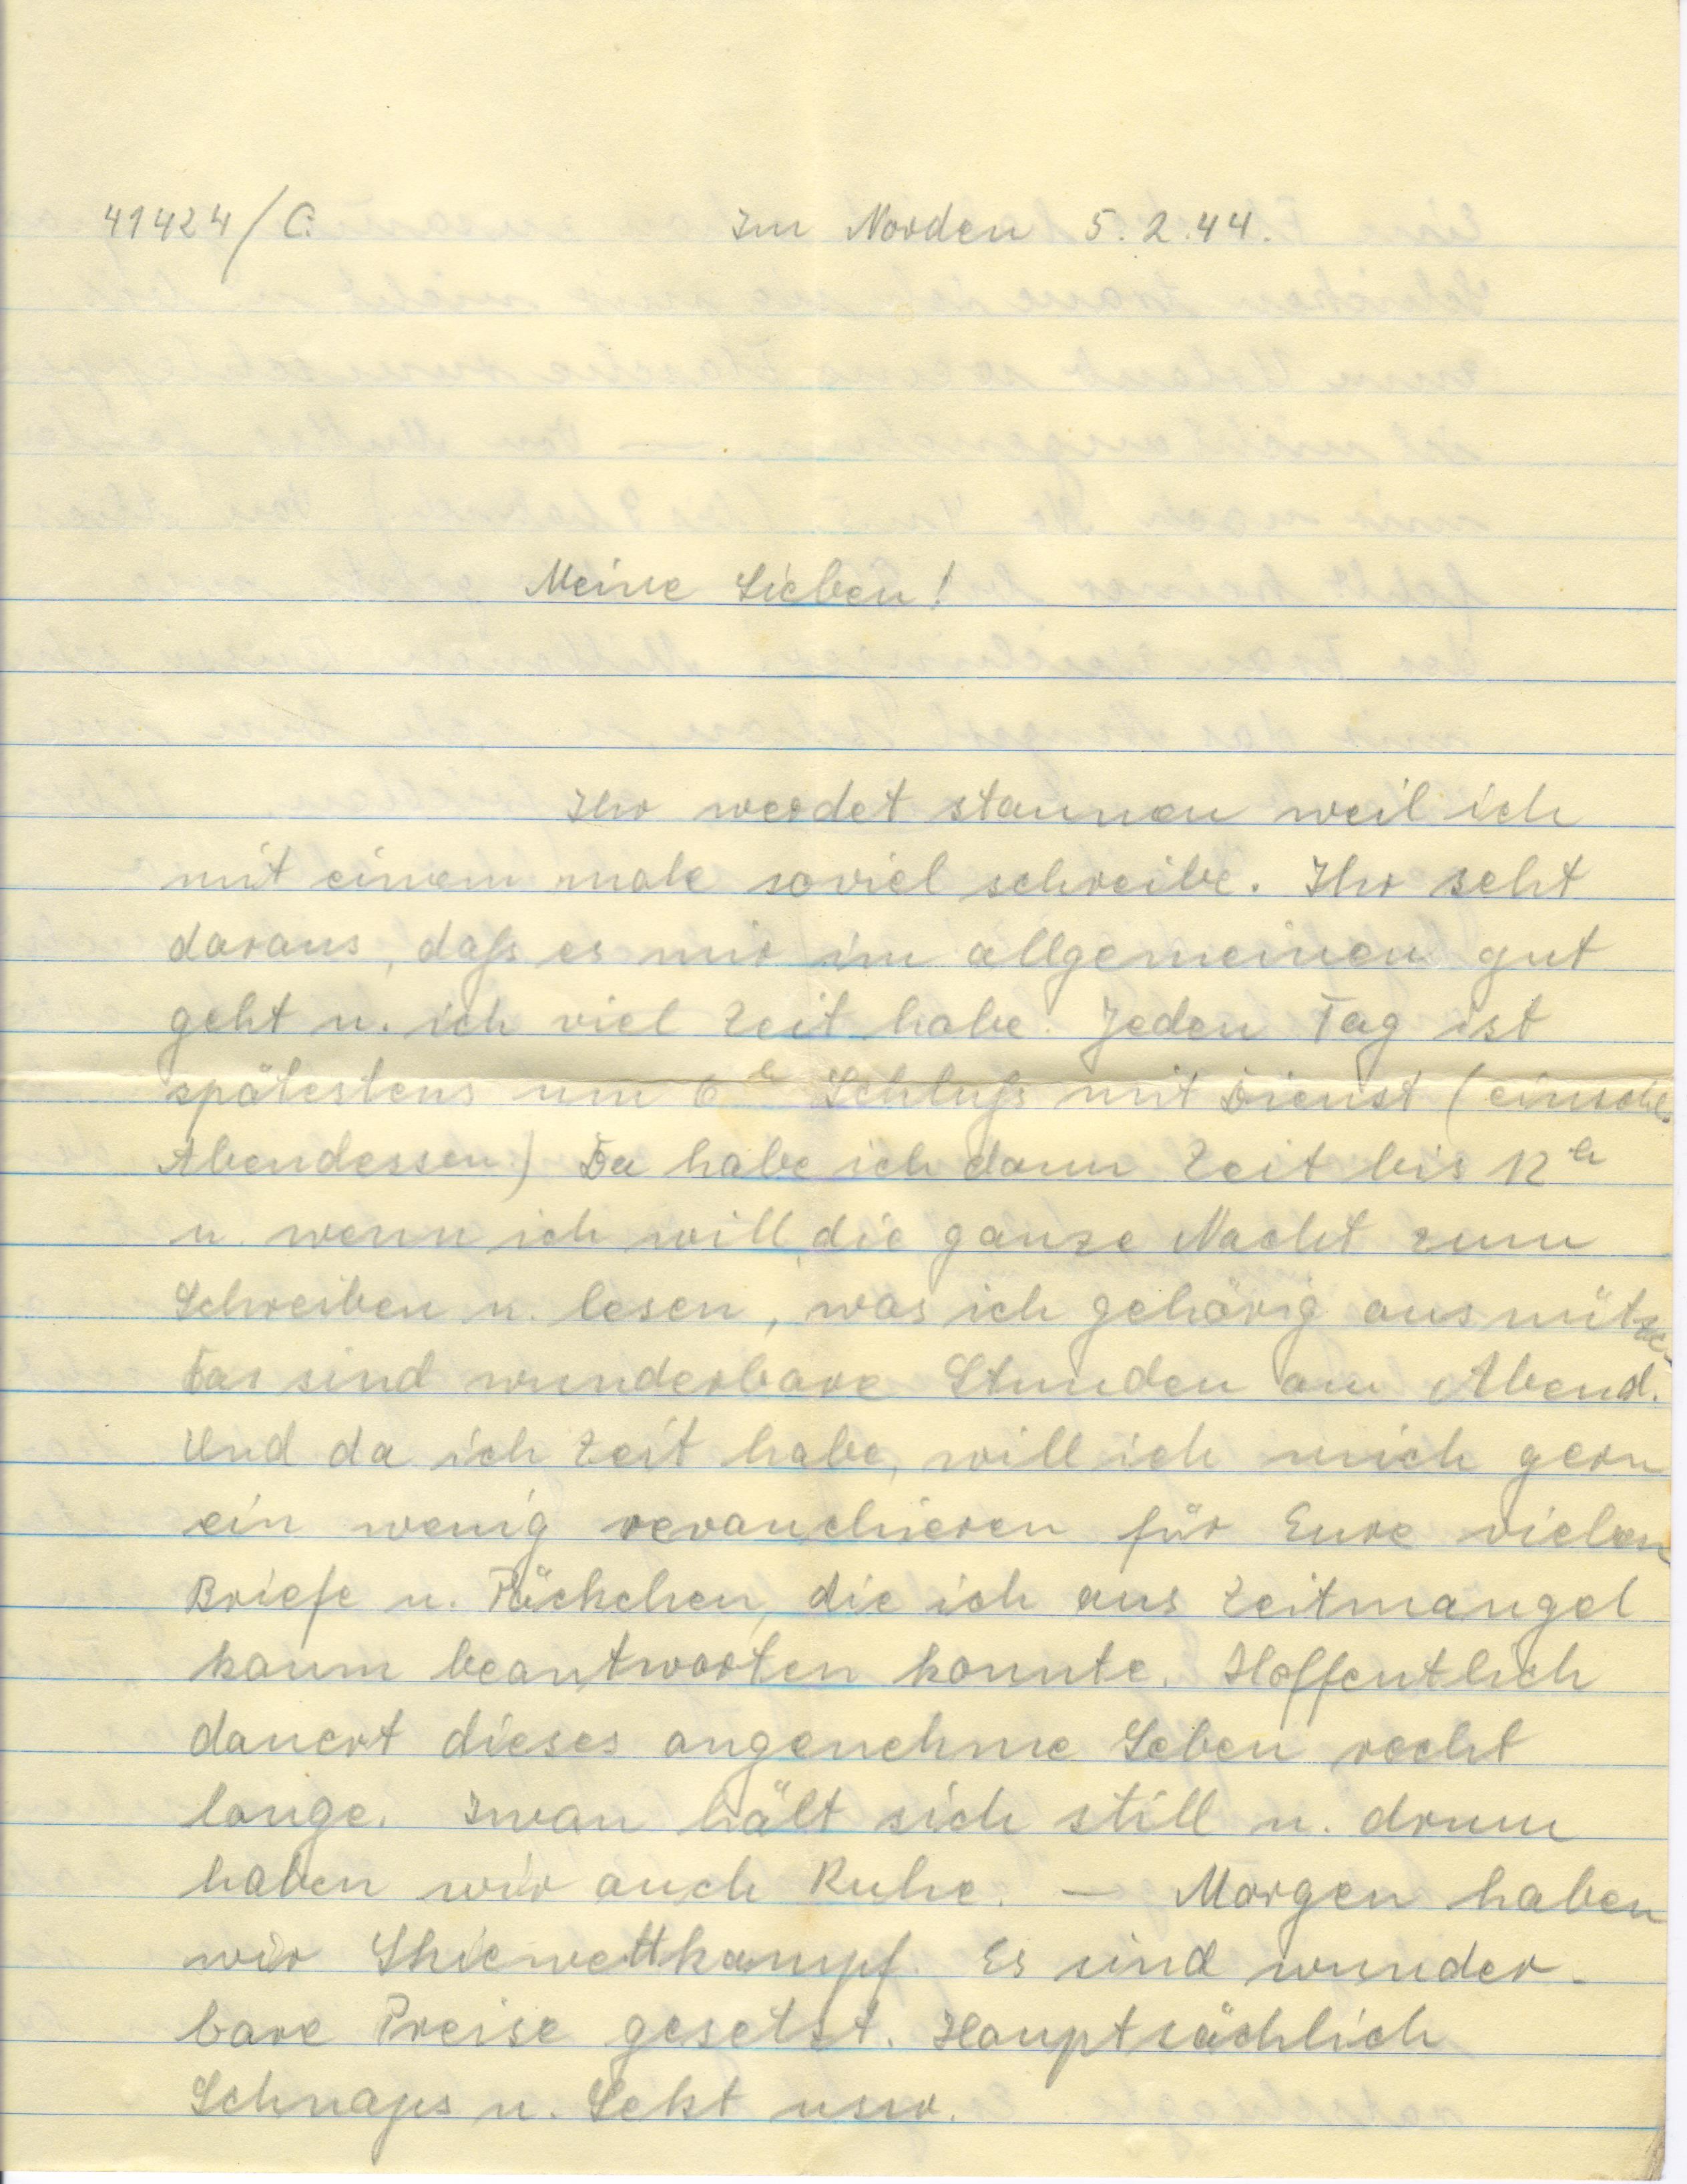 41424/C. Im Norden 5.2.44.
Meine Lieben!
Ihr werdet staunen weil ich
mit einem male soviel schreibe. Ihr seht
daraus, daß es mir im allgemeinen gut
geht u. ich viel Zeit habe. Jeden Tag ist
spätestens um 6h Schluß mit Dienst (einschl.
Abendessen) Da habe ich dann Zeit bis 12h
u. wenn ich will die ganze Nacht zum
Schreiben u. lesen, was ich gehörig ausnütze.
Das sind wunderbare Stunden am Abend.
Und da ich Zeit habe, will ich mich gern
ein wenig revanchieren für Eure vielen
Briefe u. Päckchen, die ich aus Zeitmangel
kaum beantworten konnte. Hoffentlich
dauert dieses angenehme Leben recht
lange. Iwan hält sich still u. drum
haben wir auch Ruhe. — Morgen haben
wir Skiewettkampf. Es sind wunder-
bare Preise gesetzt. Hauptsächlich
Schnaps u. Sekt usw.